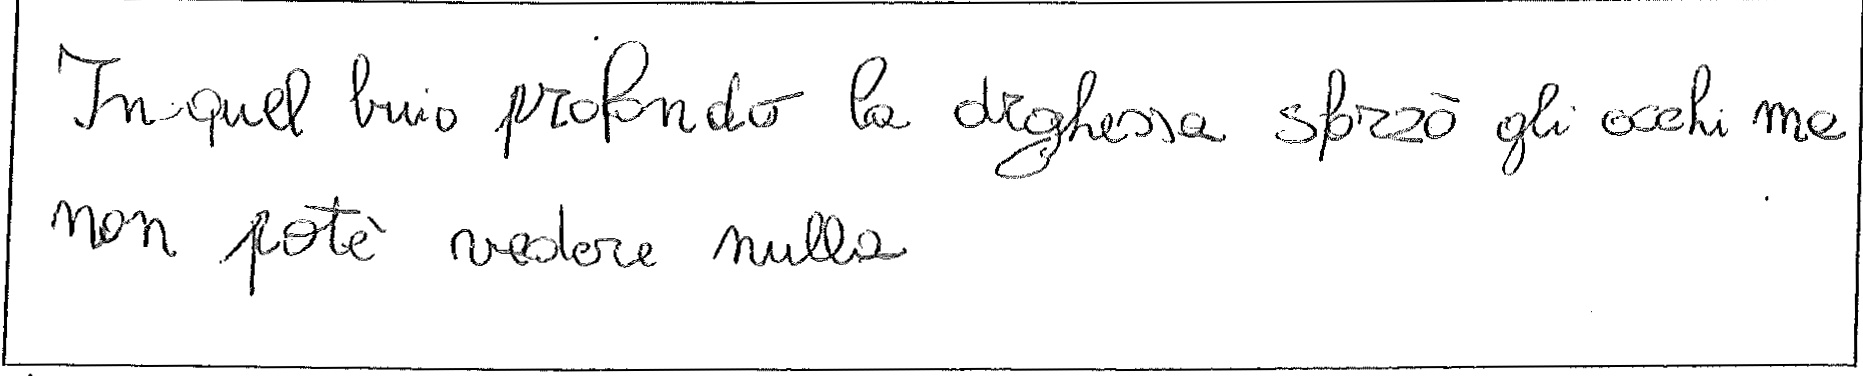 In quel buio profondo la drghessa sforzò gli occhi ma
non potè vedere nulla